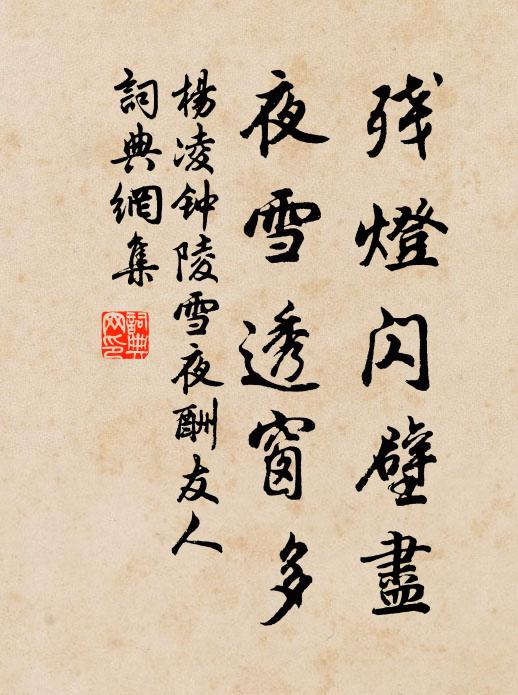 残燈闪壁盡
夜雪透窗多
楊凌钟陵雪夜酬友人
詞典網集
詞典
网印